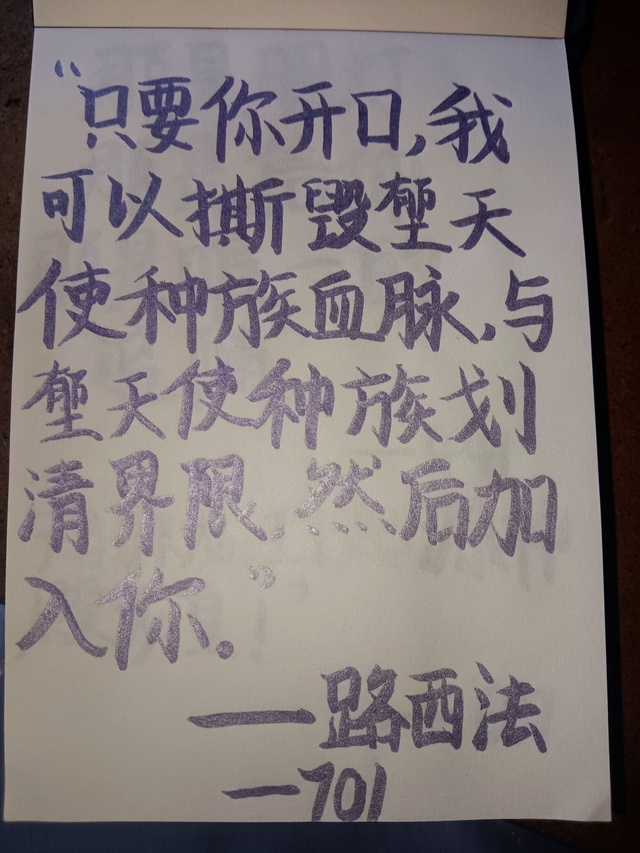 “只要你开口,我
可以撕毁堕天
使种族血脉,与
堕天使种族划
清界限,然后加
入你.”
——路西法
—701